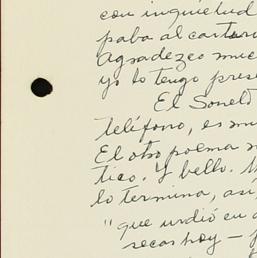 con inquietud
paba al cartero
Agradezco muc
yo lo tengo pres
El Soneto
teléfono, es mu
El otro poema m
tico. Y bello.
lo termina, así,
"que urdió en
secas hoy —